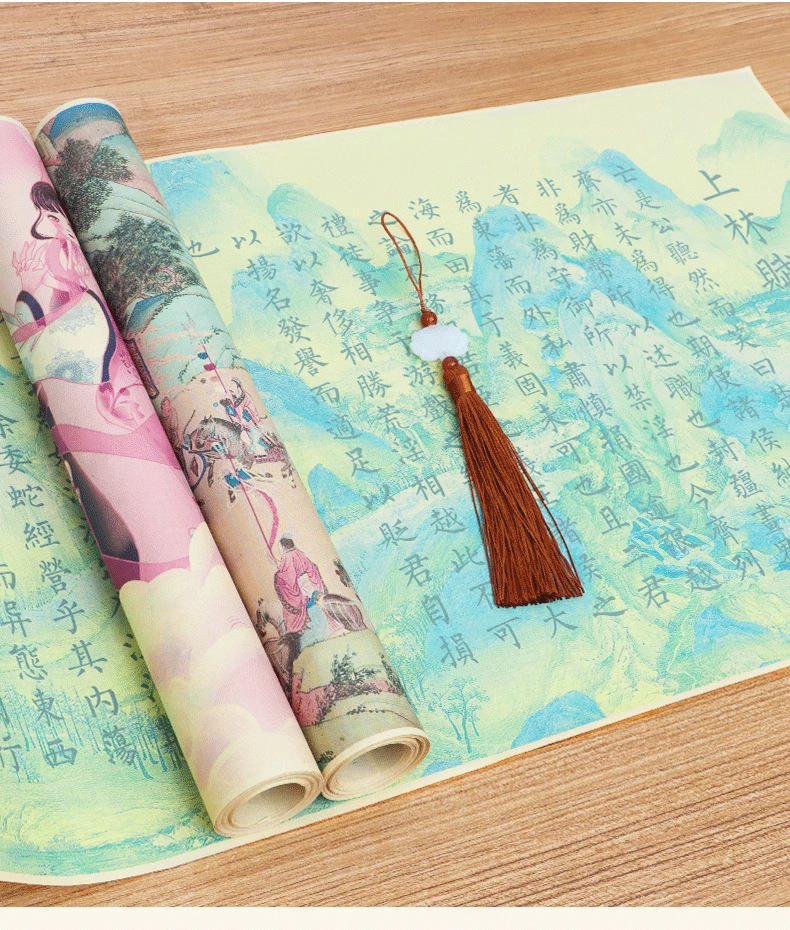 上林賦
亡是公聽然而笑曰楚
齊亦未爲得也期使諸侯納
非爲財幣所以述職也封疆畫界
者非爲守御所以禁淫也今齊列
爲東藩而外私肅慎捐國踰限越
海而田其于義固未可也且二君
之論
諸侯之
禮徒事爭
游戲
大
欲以奢侈相勝荒淫相越此不可
以揚名發譽而適足以貶君自損
也
蕩
余委蛇經營乎其內
而异態東西